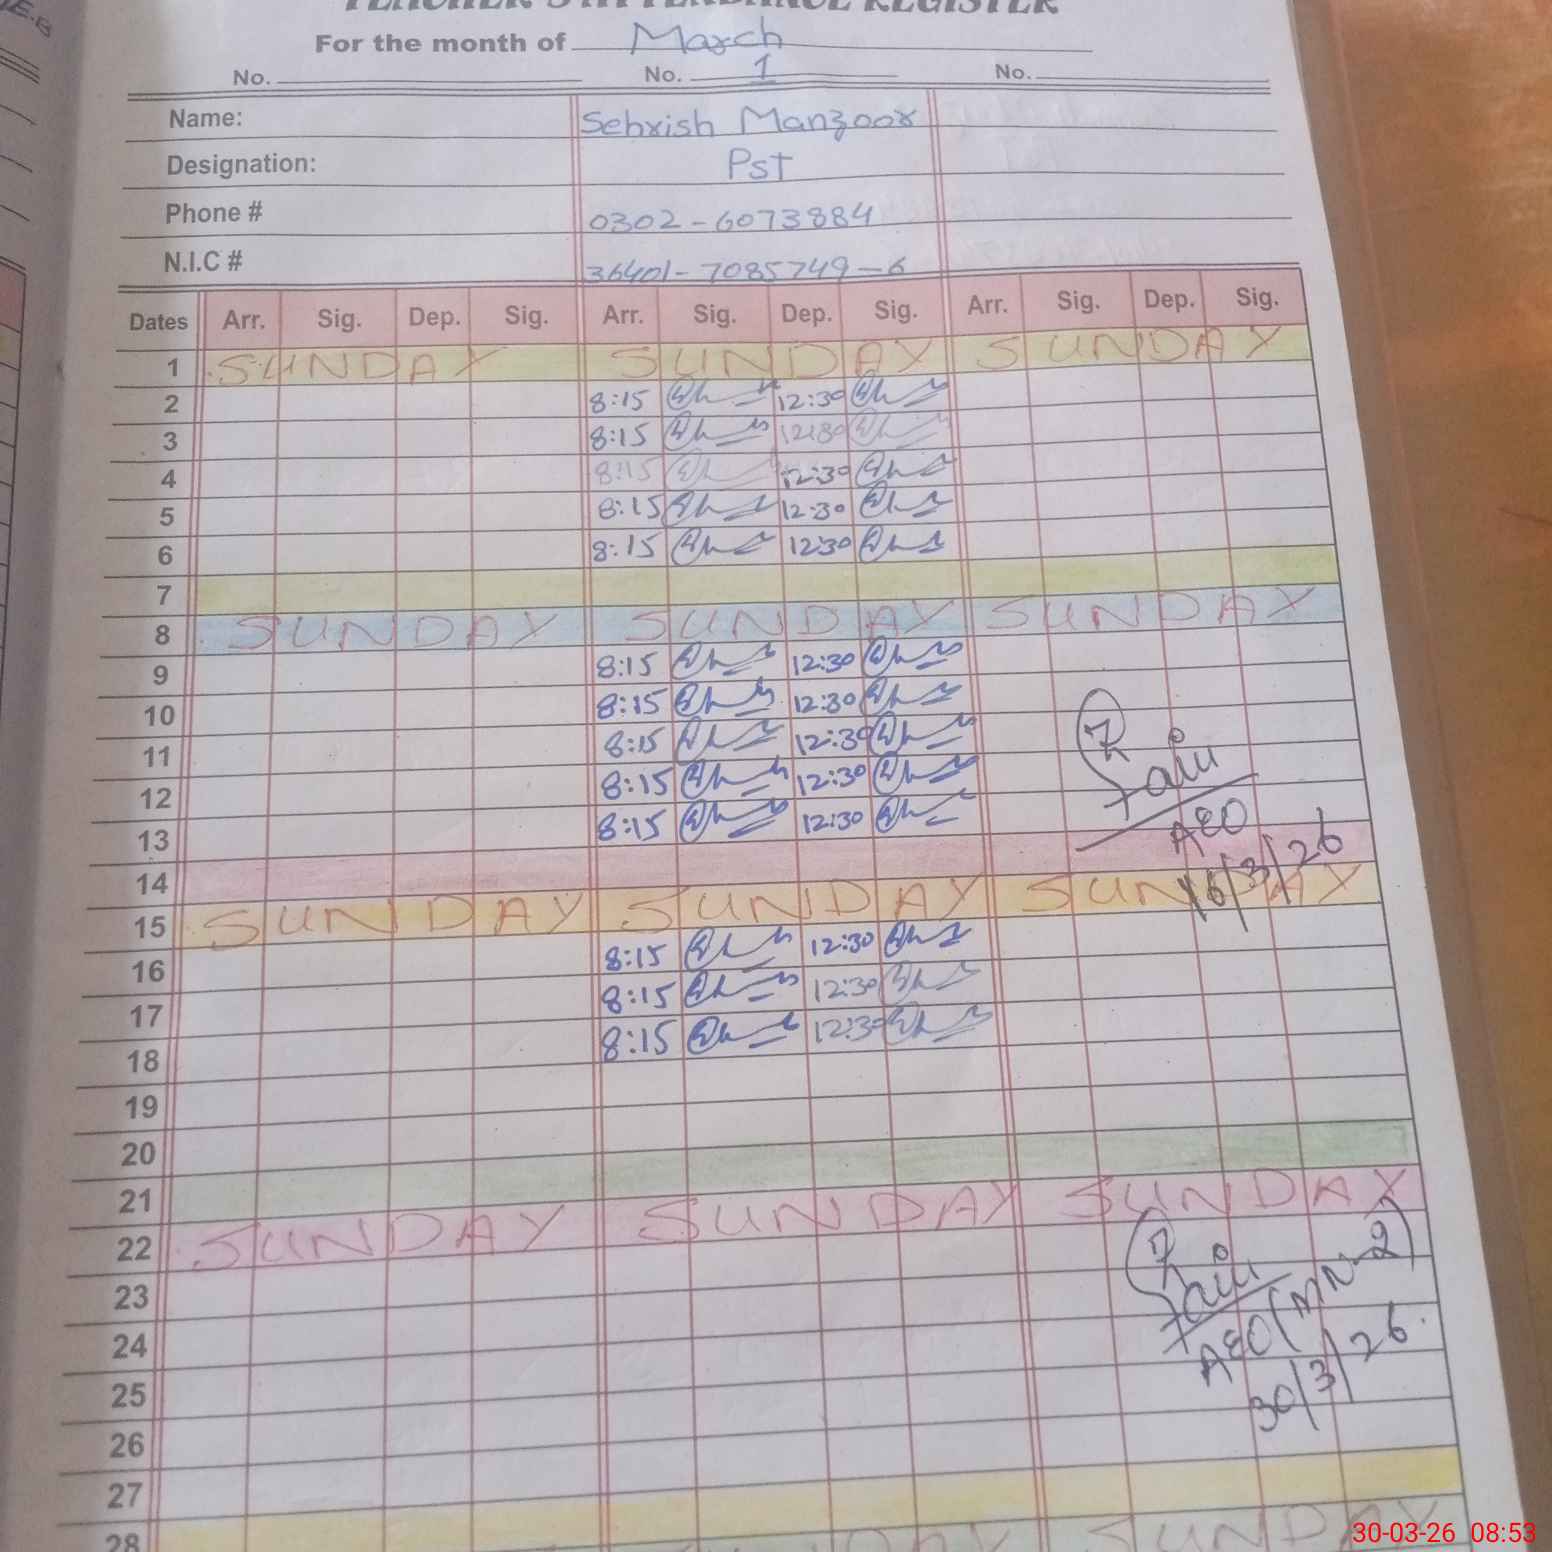 TEACHER'S ATTENDANCE REGISTER
For the month of March
No. No. 1 No.
Name: Sehrish Manzoor
Designation: Pst
Phone # 0302-6073884
N.I.C # 36401-7085749-6
Dates Arr. Sig. Dep. Sig. Arr. Sig. Dep. Sig. Arr. Sig. Dep. Sig.
1 SUNDAY SUNDAY SUNDAY
2 8:15 12:30
3 8:15 12:30
4 8:15 12:30
5 8:15 12:30
6 8:15 12:30
7
8 SUNDAY SUNDAY SUNDAY
9 8:15 12:30
10 8:15 12:30
11 8:15 12:30
12 8:15 12:30
13 8:15 12:30
AEO
14
16/3/26
15 SUNDAY SUNDAY SUNDAY
16 8:15 12:30
17 8:15 12:30
18 8:15 12:30
19
20
21
22 SUNDAY SUNDAY SUNDAY
23
24
AEO (MN-2)
25
30/3/26
26
27
28 DAY SUNDAY
30-03-26 08:53